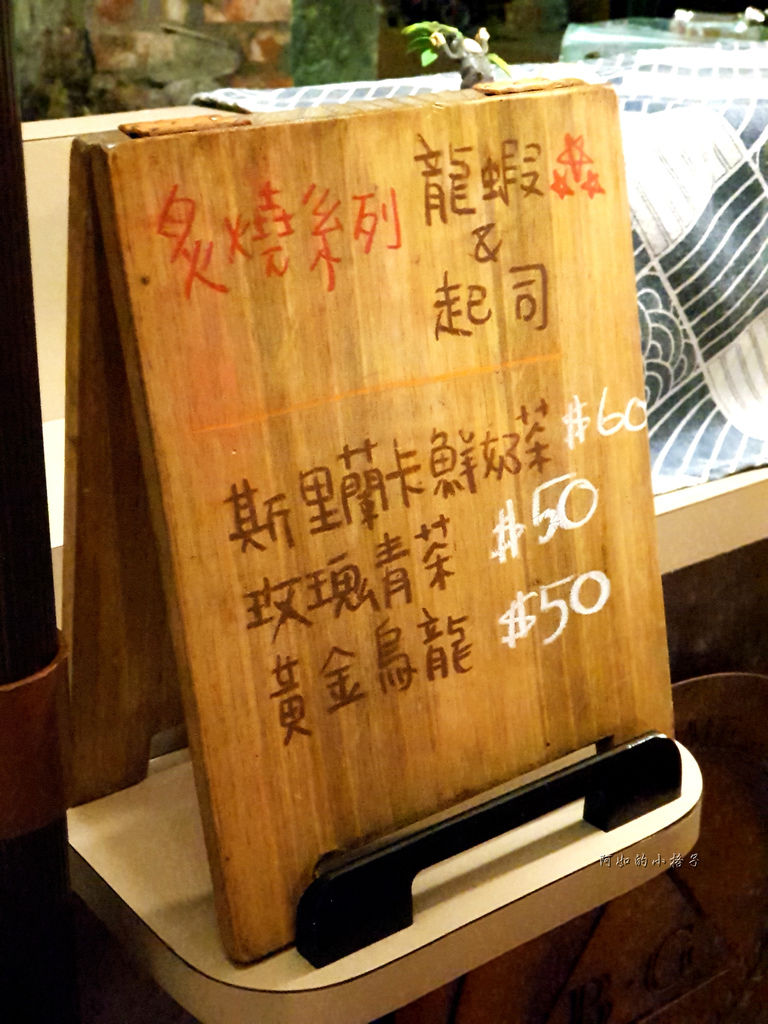 炙燒系列
龍蝦
&
起司
斯里蘭卡鮮奶茶 $60
玫瑰青茶 $50
黃金烏龍 $50
阿如的小格子